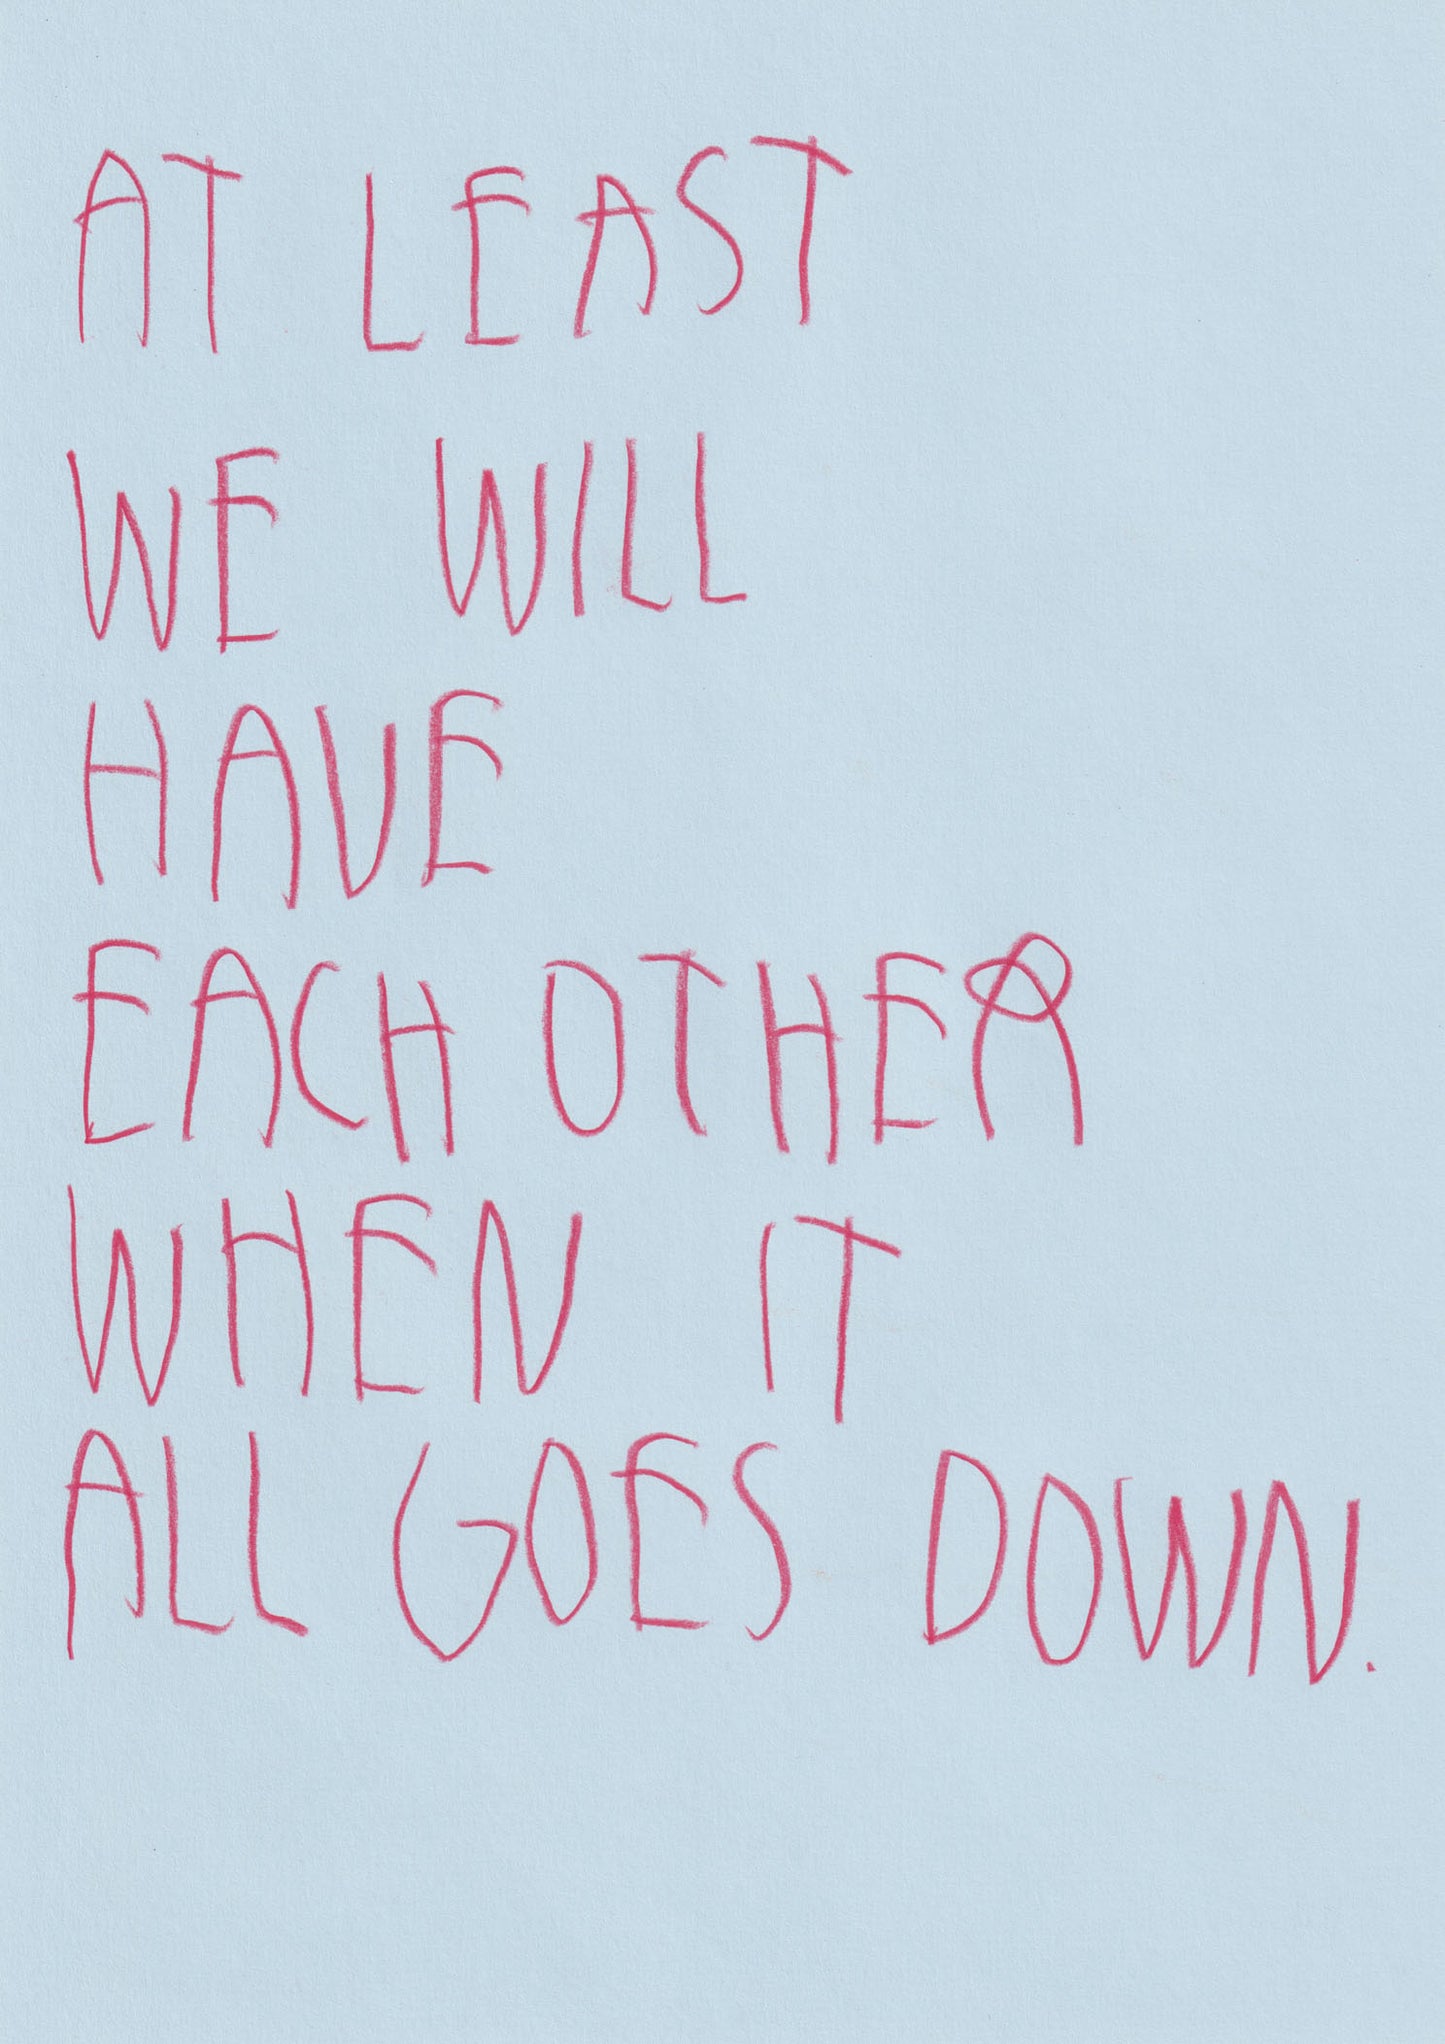 AT LEAST
WE WILL
HAVE
EACH OTHER
WHEN IT
ALL GOES DOWN.